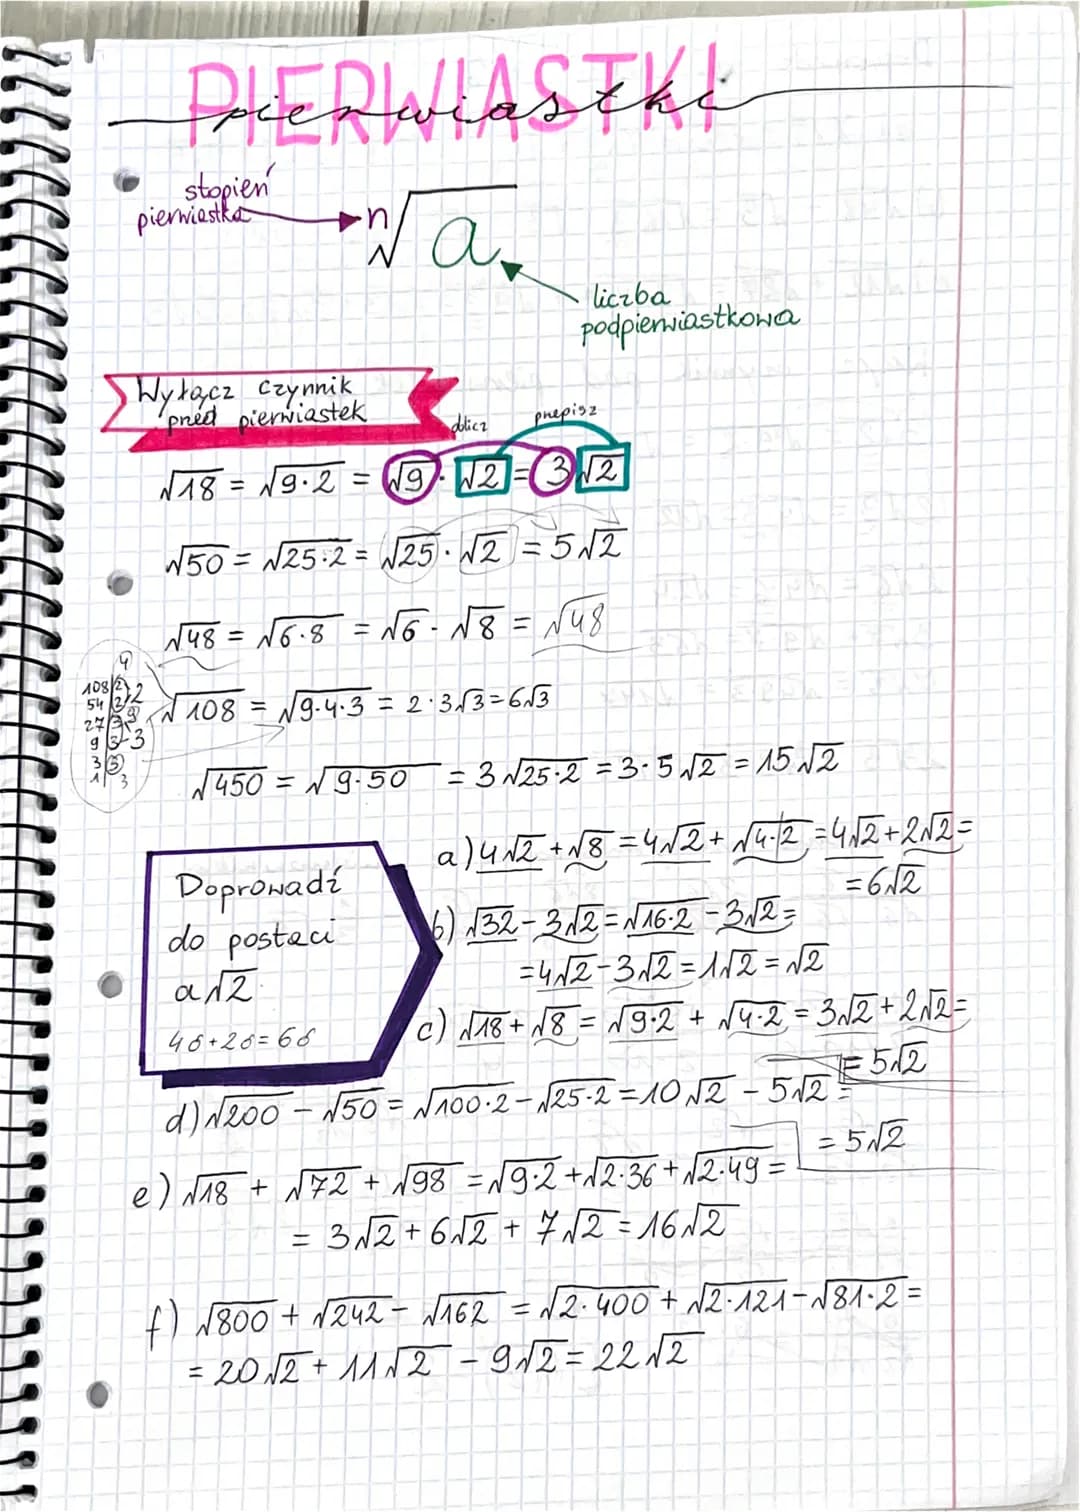 PIERWIASTKI
pierwiastki
stopień
pierwiastka
n√a
liczba
podpierwiastkowa
Wyłącz czynnik
przed pierwiastek
oblicz
przepisz
√18 = √9·2 = √9 · √2 = 3√2
√50 = √25·2 = √25 · √2 = 5√2
√48 = √6·8 = √6 · √8 = √48
4
108|2
54|2 2
27|3 9
9|3 3
3|3
1| 3
√108 = √9·4·3 = 2·3√3 = 6√3
√450 = √9·50 = 3√25·2 = 3·5√2 = 15√2
Doprowadź
do postaci
a√2
4b+2b=6b
a) 4√2 + √8 = 4√2 + √4·2 = 4√2 + 2√2 =
= 6√2
b) √32 - 3√2 = √16·2 - 3√2 =
= 4√2 - 3√2 = 1√2 = √2
c) √18 + √8 = √9·2 + √4·2 = 3√2 + 2√2 =
= 5√2
d) √200 - √50 = √100·2 - √25·2 = 10√2 - 5√2 =
= 5√2
e) √18 + √72 + √98 = √9·2 + √2·36 + √2·49 =
= 3√2 + 6√2 + 7√2 = 16√2
f) √800 + √242 - √162 = √2·400 + √2·121 - √81·2 =
= 20√2 + 11√2 - 9√2 = 22√2